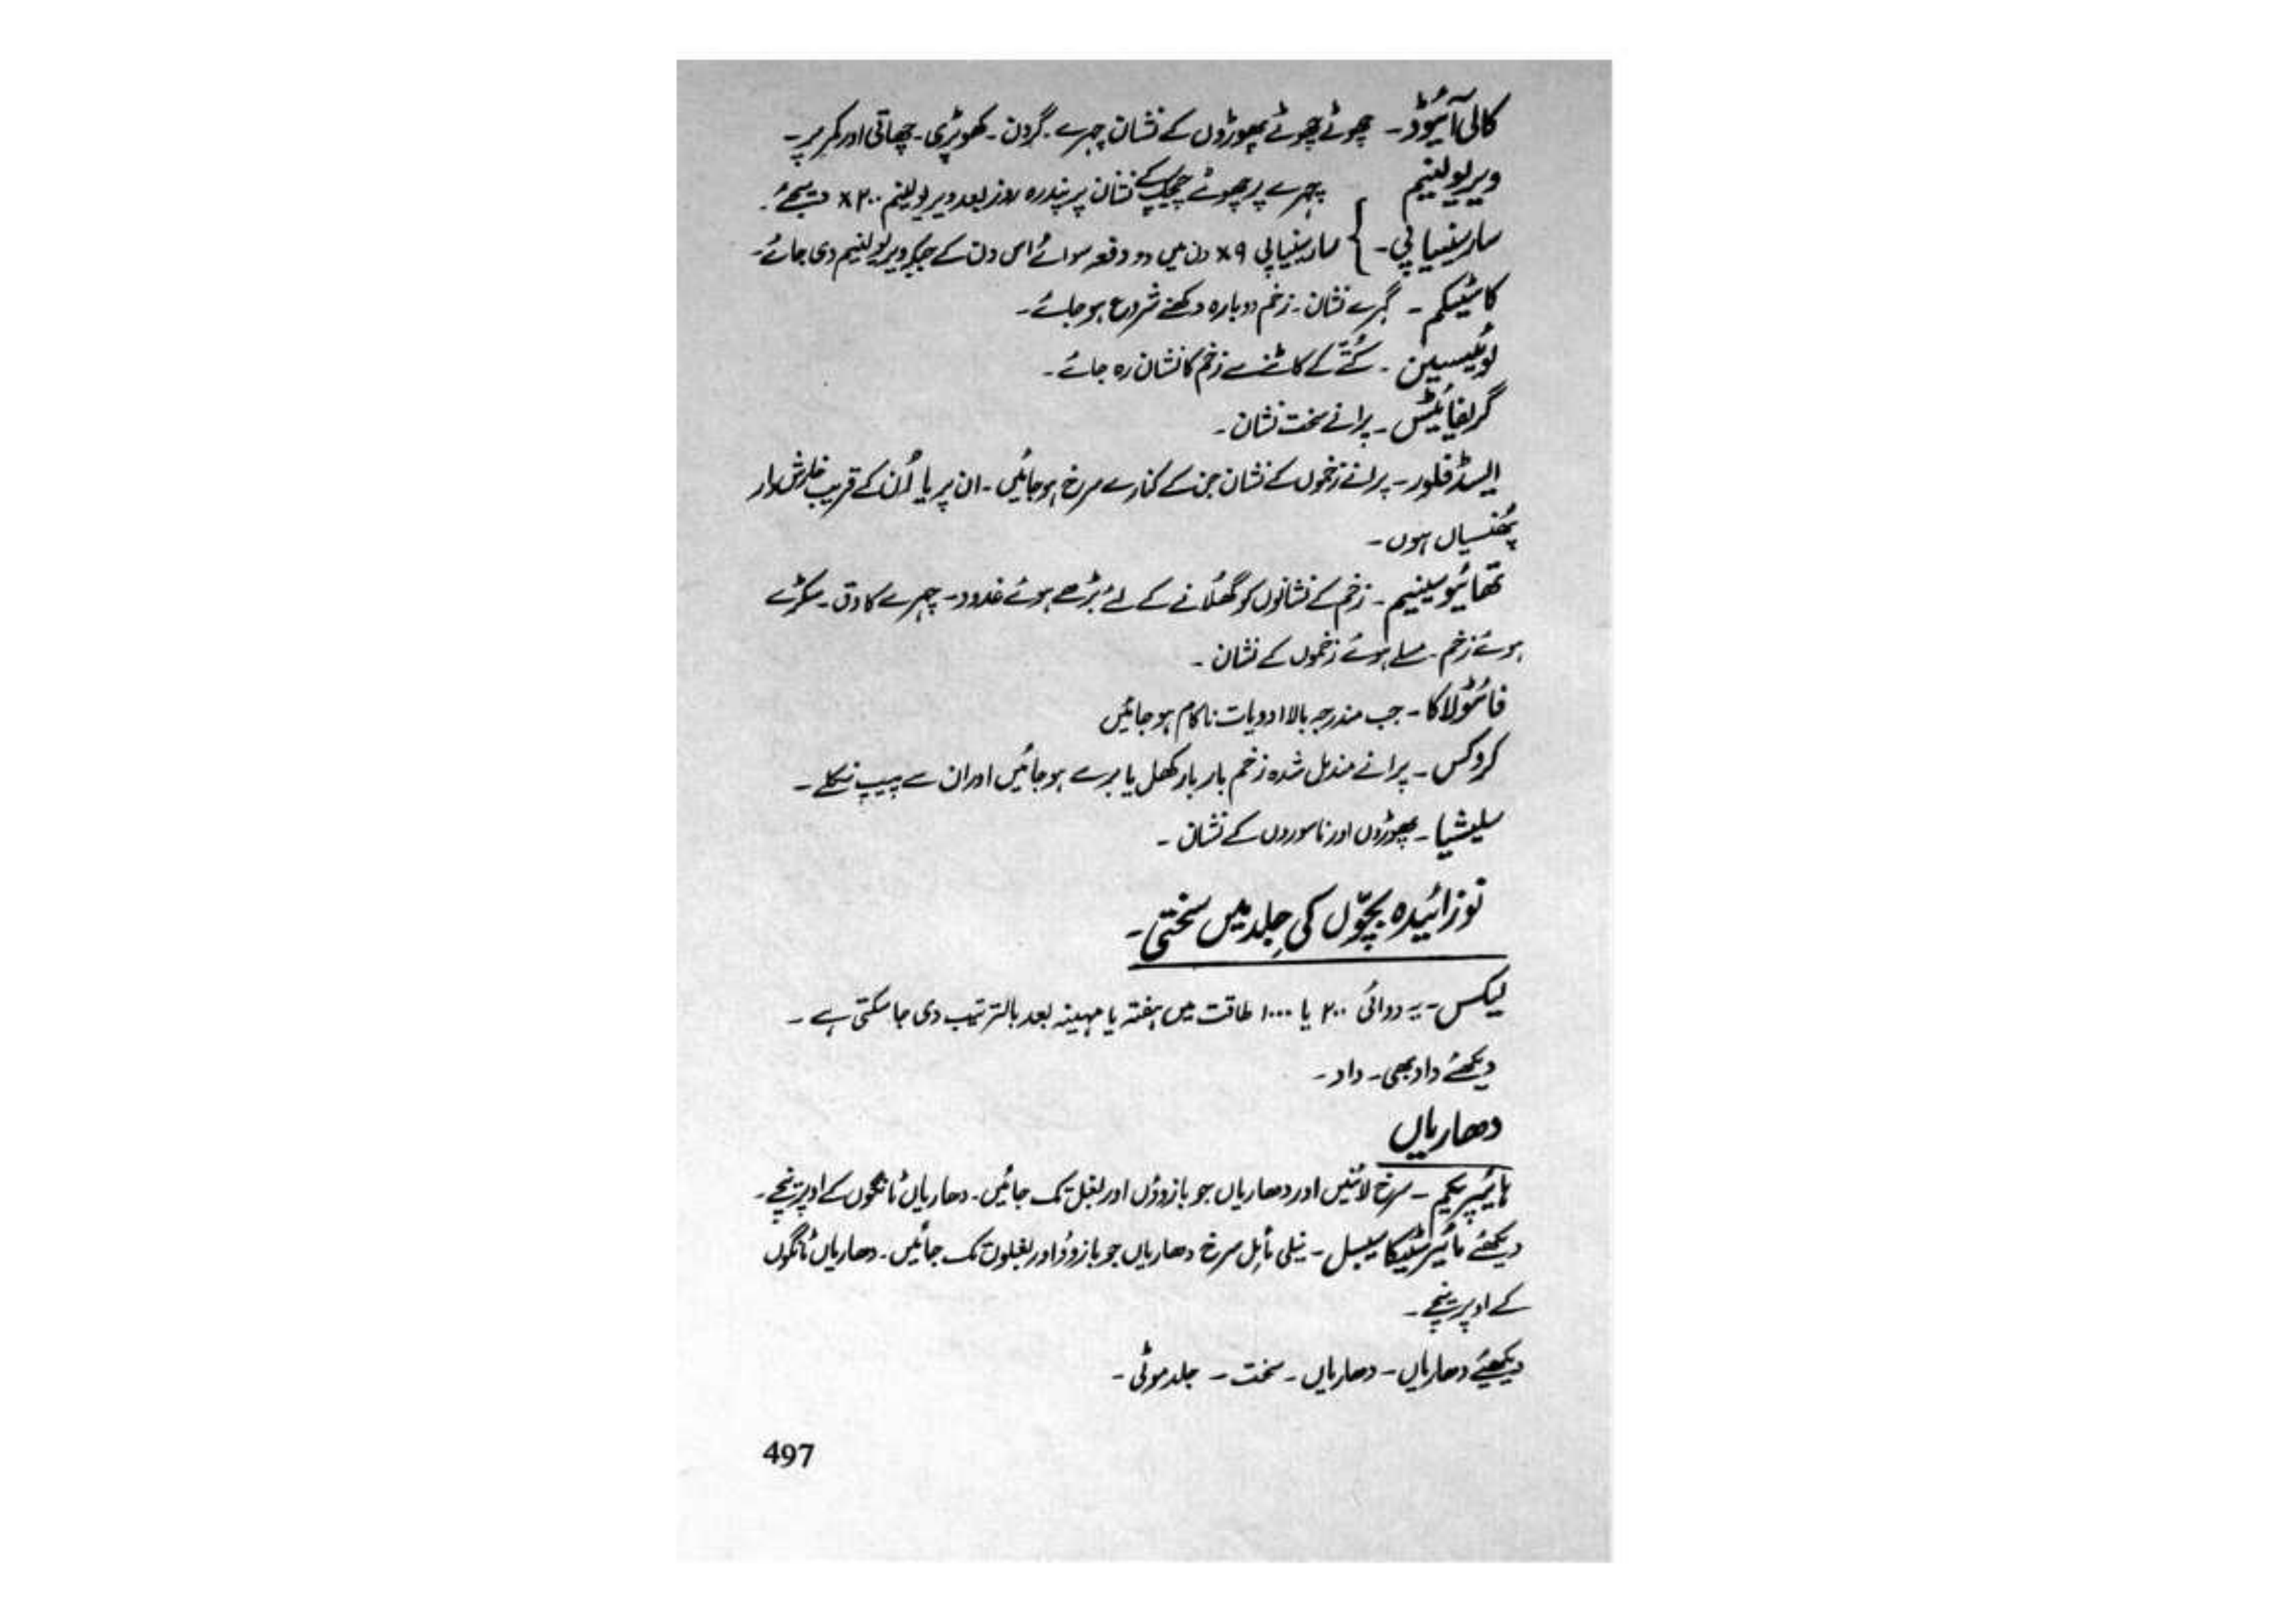 کالی آئیوڈ۔ چھوٹے چھوٹے پھوڑوں کے نشان چہرے۔ گردن۔ کھوپڑی۔ چھاتی اور کمر پر۔
ویریولینیم چہرے پر چھوٹے چیچک کے نشان پر پندرہ روز بعد ویریولینم ۲۰۰x دیجئے۔
سارسینیا پی۔ } سارسینیا پی ۹x دن میں دو دفعہ سوائے اس دن کے جبکہ ویریولینیم دی جائے۔
کاسٹیکم۔ گہرے نشان۔ زخم دوبارہ دکھنے شروع ہو جائے۔
لوئیسین۔ کُتّے کے کاٹنے سے زخم کا نشان رہ جائے۔
گریفائیٹس۔ پرانے سخت نشان۔
ایسڈ فلور۔ پرانے زخموں کے نشان جن کے کنارے سرخ ہو جائیں۔ ان پر یا اُن کے قریب خارش دار
پُھنسیاں ہوں۔
تھائیوسینیم۔ زخم کے نشانوں کو گھُلانے کے لئے بڑھے ہوئے غدود۔ چہرے کا دق۔ سکڑے
ہوئے زخم۔ ملے ہوئے زخموں کے نشان۔
فائٹولاکا۔ جب مندرجہ بالا ادویات ناکام ہو جائیں
کروکس۔ پرانے مندمل شدہ زخم بار بار کھل یا ہرے ہو جائیں اور ان سے پیپ نکلے۔
سلیشیا۔ پھوڑوں اور ناسوروں کے نشان۔
نوزائیدہ بچّوں کی جِلد میں سختی۔
لیکس۔ یہ دوائی ۲۰۰ یا ۱۰۰۰ طاقت میں ہفتہ یا مہینہ بعد بالترتیب دی جا سکتی ہے۔
دیکھئے داد بھی۔ داد۔
دھاریاں
ہائیپریکم۔ سرخ لائنیں اور دھاریاں جو بازوؤں اور بغل تک جائیں۔ دھاریاں ٹانگوں کے اوپر نیچے۔
دیکھئے مائیرسٹیکا سیبل۔ نیلی مائل سرخ دھاریاں جو بازوؤ اور بغلوں تک جائیں۔ دھاریاں ٹانگوں
کے اوپر نیچے۔
دیکھئے دھاریاں۔ دھاریاں۔ سخت۔ جلد موٹی۔
497